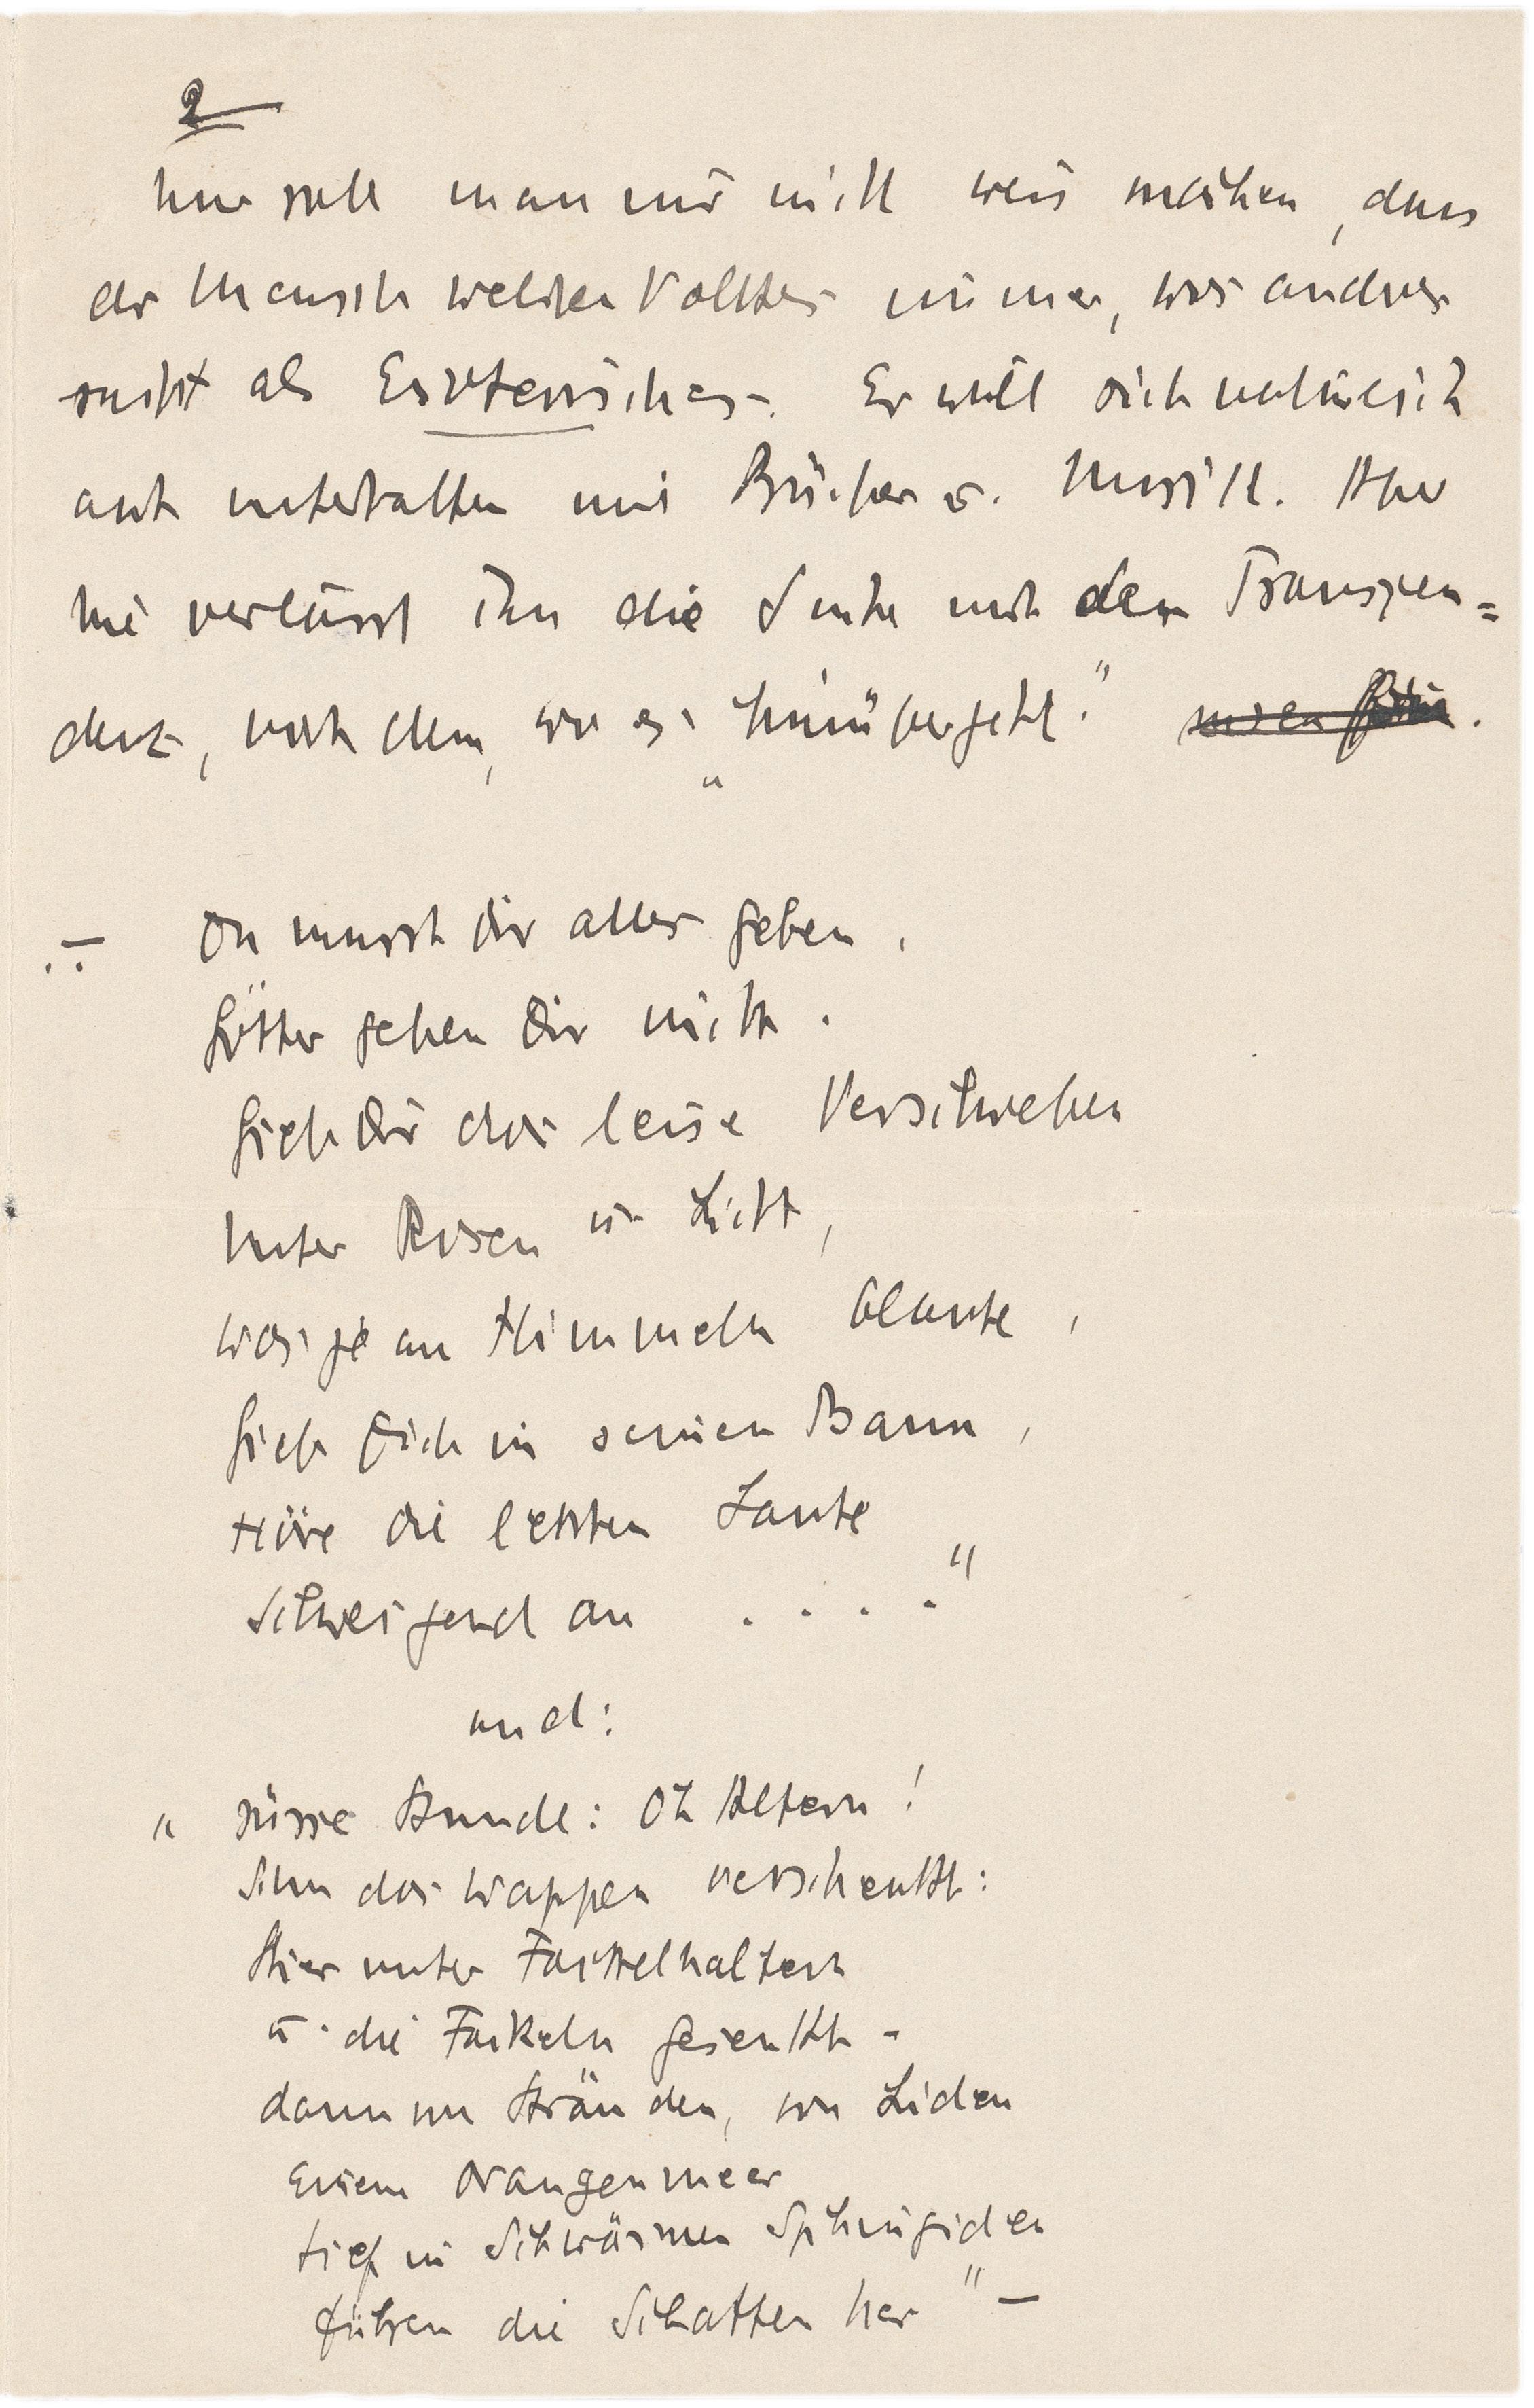 2
Nun soll man mir nicht weis machen, dass
der Mensch welchen Volkes immer, was andres
sucht als Esoterisches. Er will sich natürlich
auch unterhalten mit Bücher u. Musik. Aber
nie verlässt ihn die Suche nach dem Transzen=
denz, nach dem, wo es „hinübergeht."
„ Du musst dir alles geben,
Götter geben Dir nicht.
Gieb Dir das leise Verschweben
Unter Rosen u. Licht,
was je an Himmeln blaute,
Gieb Dich in seinen Bann,
Höre die letzten Laute
Schweigend an . . . . "
und:
„ Süsse Stunde: Oh Altern!
Schon das Wappen verschenkt:
Stier unter Fackelhaltern
u. die Fackeln gesenkt -
dann von Stränden, von Liden
Einem Orangenmeer
tief in Schwärmen Sphingiden
führen die Schatten her " —